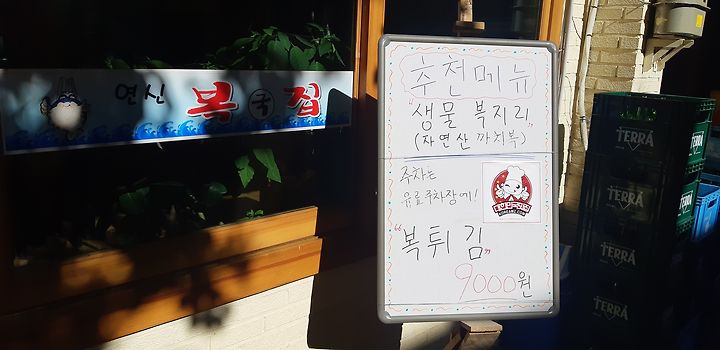 연신 복국집
추천메뉴
"생물 복지리"
(자연산 까치복)
주차는
유료주차장에!
"복튀김"
9000원
TERRA
TERRA
TERRA
TERRA